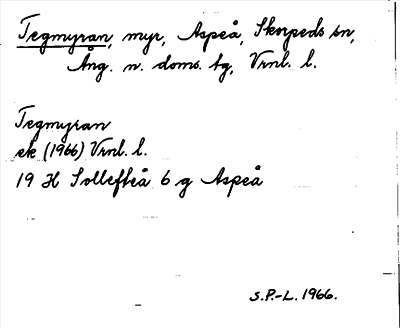 Tegmyran, myr, Aspeå, Skorpeds sn,
Ång. n. doms. tg, Vrnl. l.
Tegmyran
ek (1966) Vrnl. l.
19 H Sollefteå 6 g Aspeå
S.P.-L. 1966.